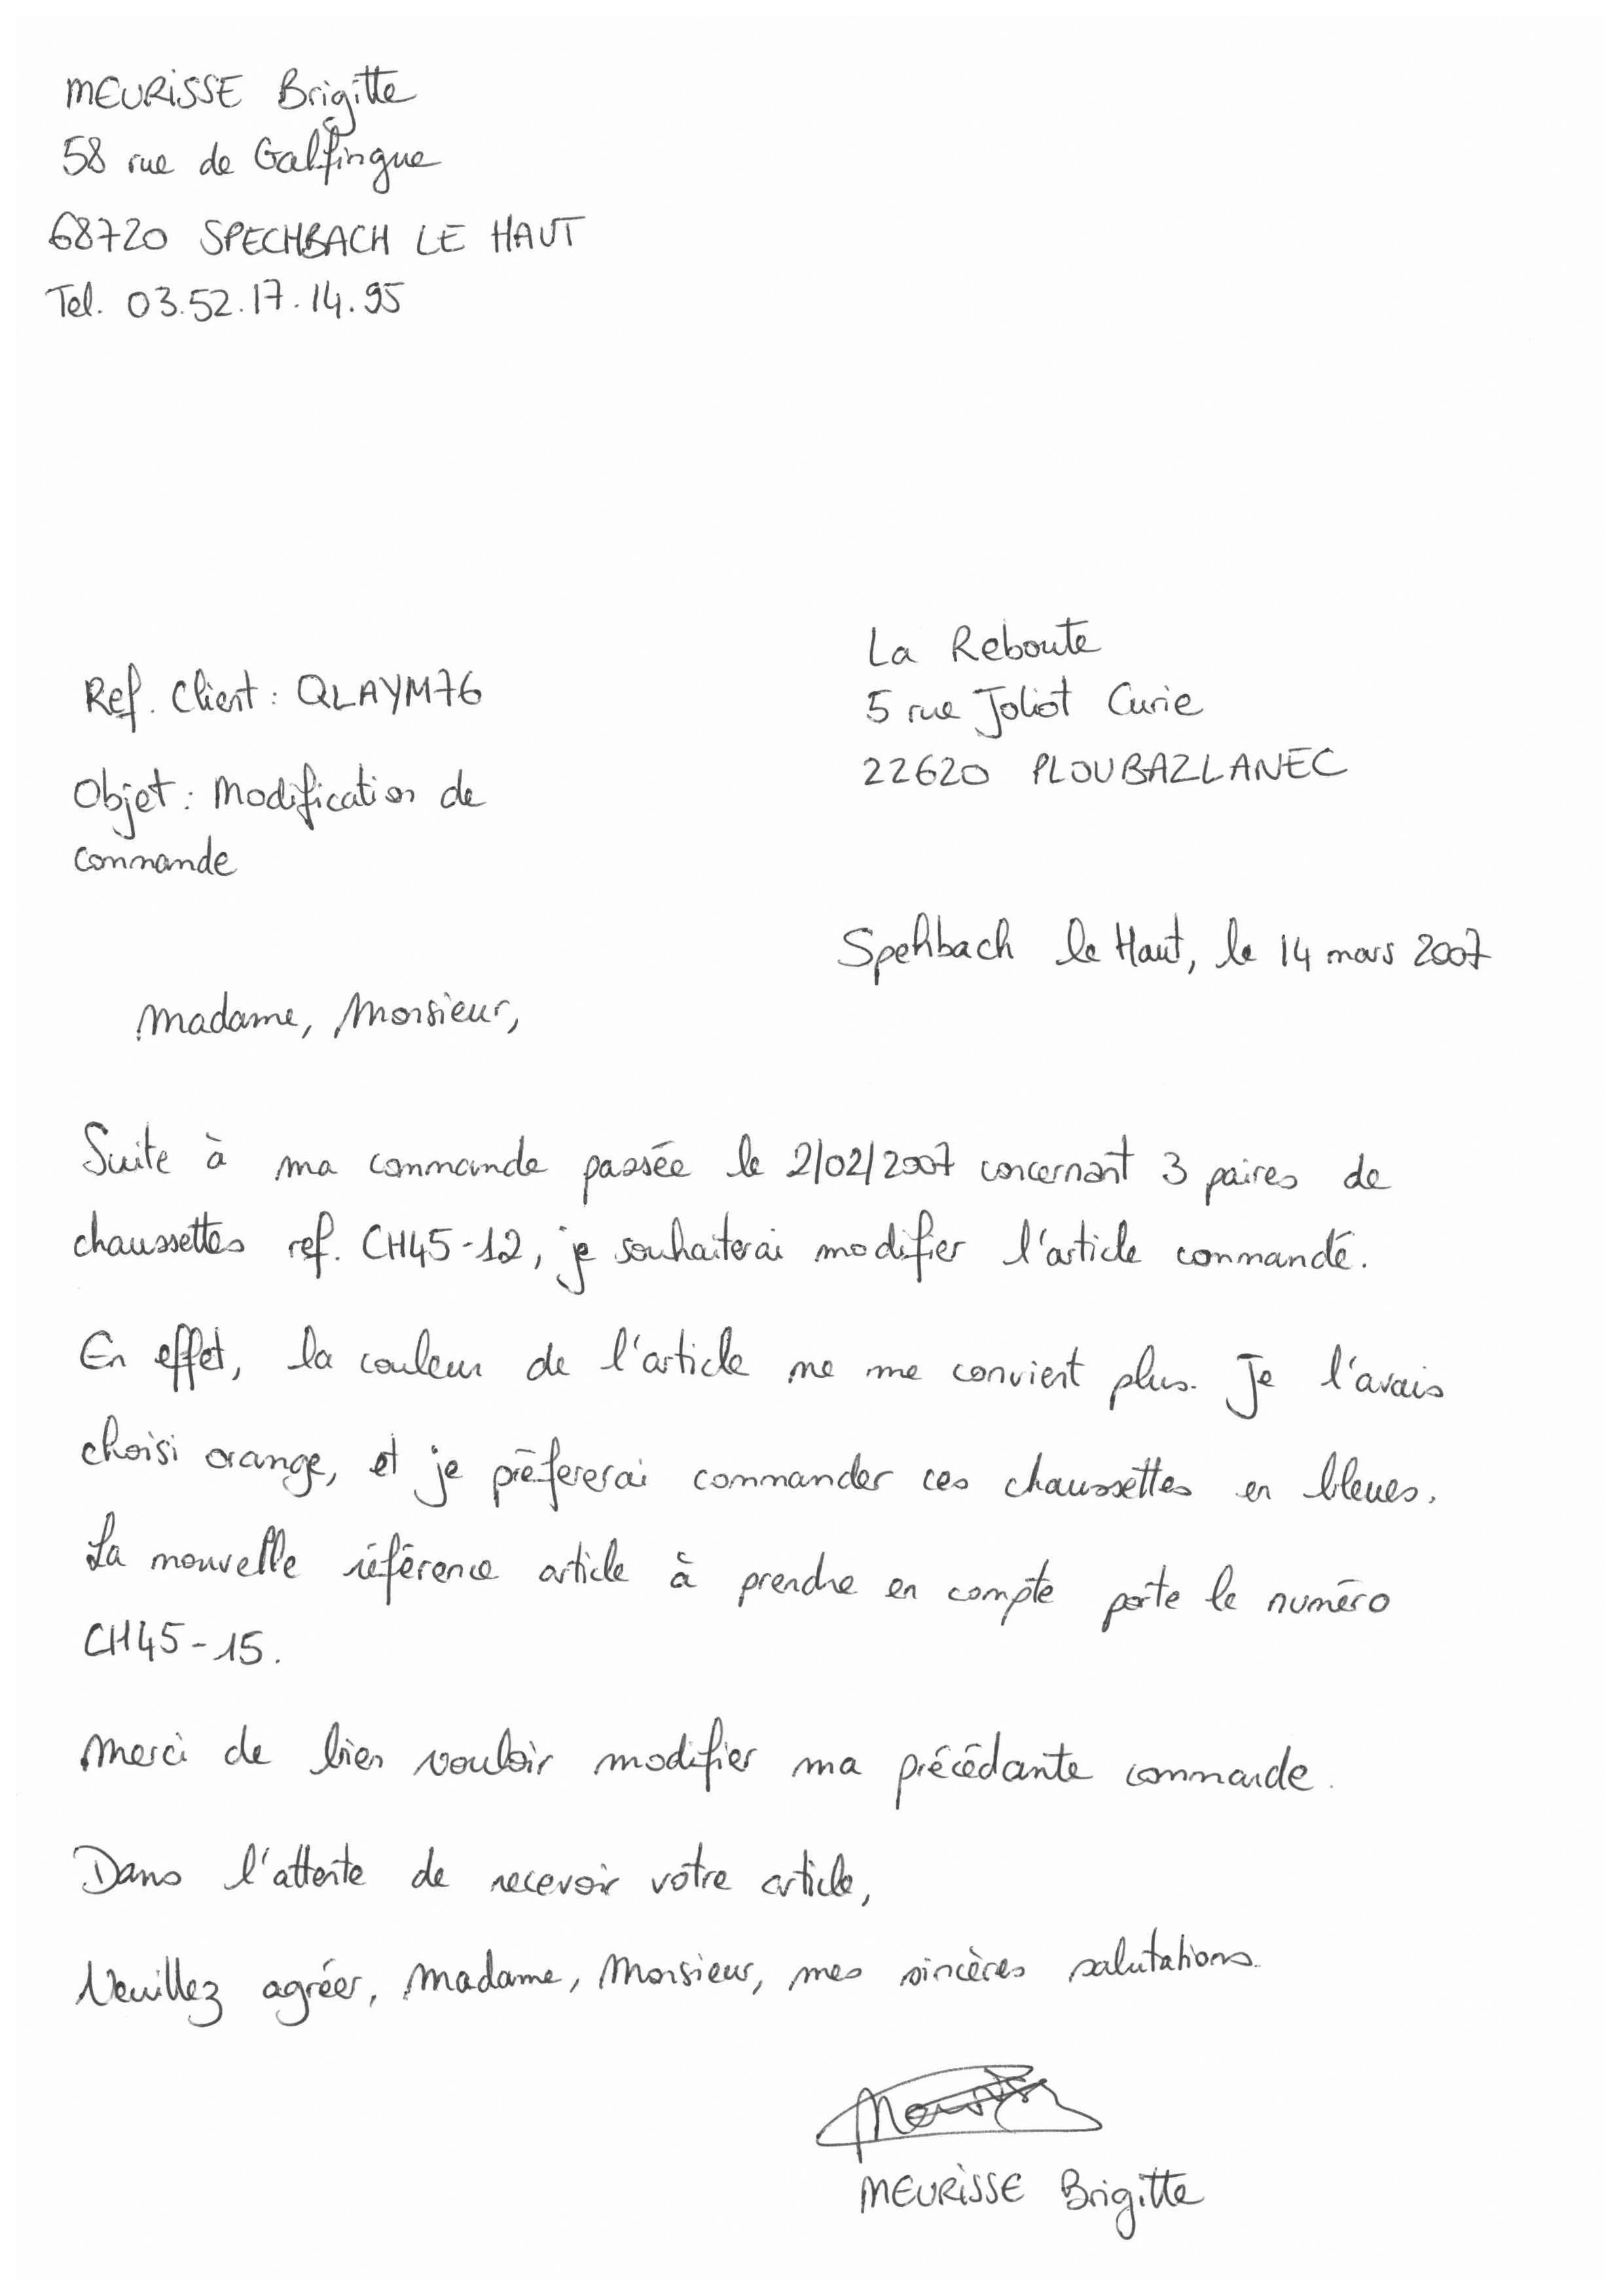 MEURISSE Brigitte
58 rue de Galfingue
68720 SPECHBACH LE HAUT
Tel. 03.52.17.14.95
La Reboute
5 rue Joliot Curie
22620 PLOUBAZLANEC
Ref. Client : QLAYM76
Objet : Modification de
commande
Spehbach le Haut, le 14 mars 2007
Madame, Monsieur,
Suite à ma commande passée le 2/02/2007 concernant 3 paires de
chaussettes ref. CH45-12, je souhaiterai modifier l'article commandé.
En effet, la couleur de l'article ne me convient plus. Je l'avais
choisi orange, et je préfererai commander ces chaussettes en bleues.
La nouvelle référence article à prendre en compte porte le numéro
CH45-15.
Merci de bien vouloir modifier ma précédante commande.
Dans l'attente de recevoir votre article,
Veuillez agréer, Madame, Monsieur, mes sincères salutations.
MEURISSE Brigitte